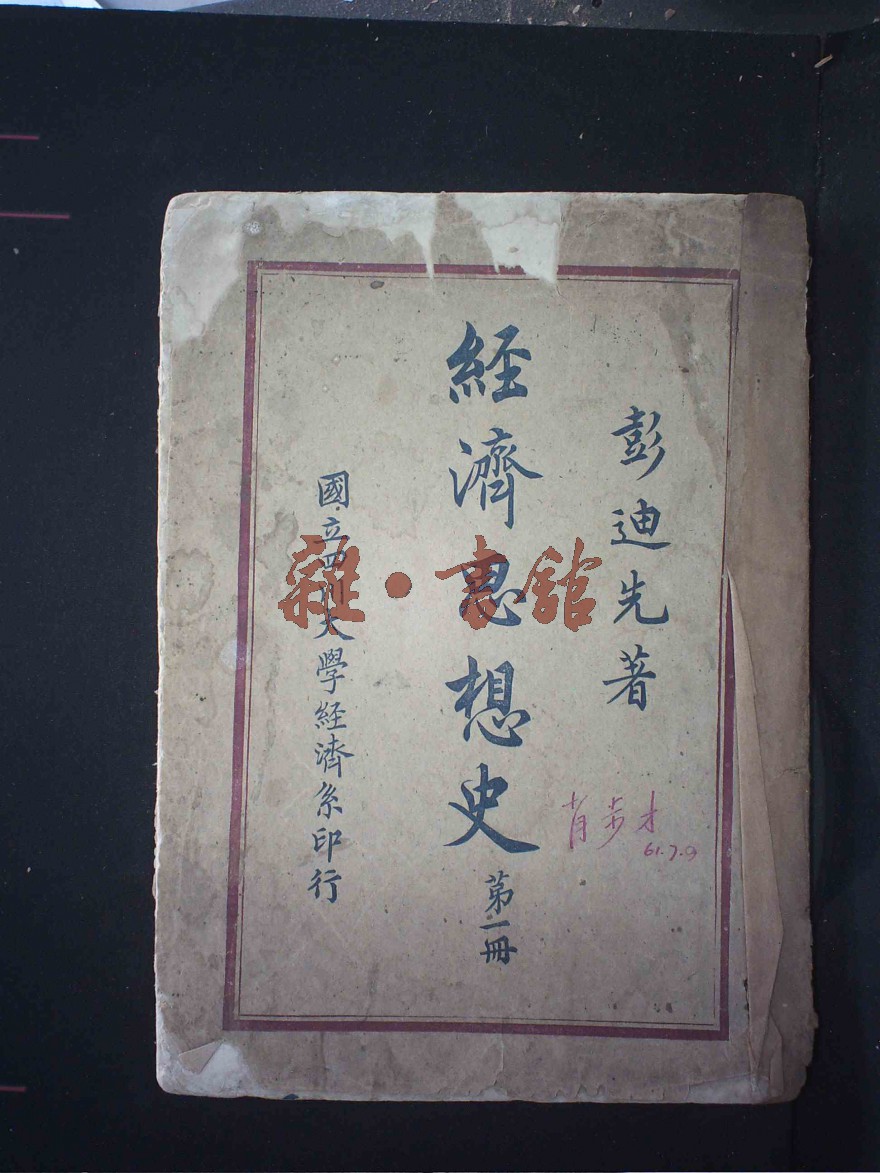 彭迪先著
經濟思想史
第一冊
國立四川大學經濟系印行
肖步才
61.7.9
雜·書館